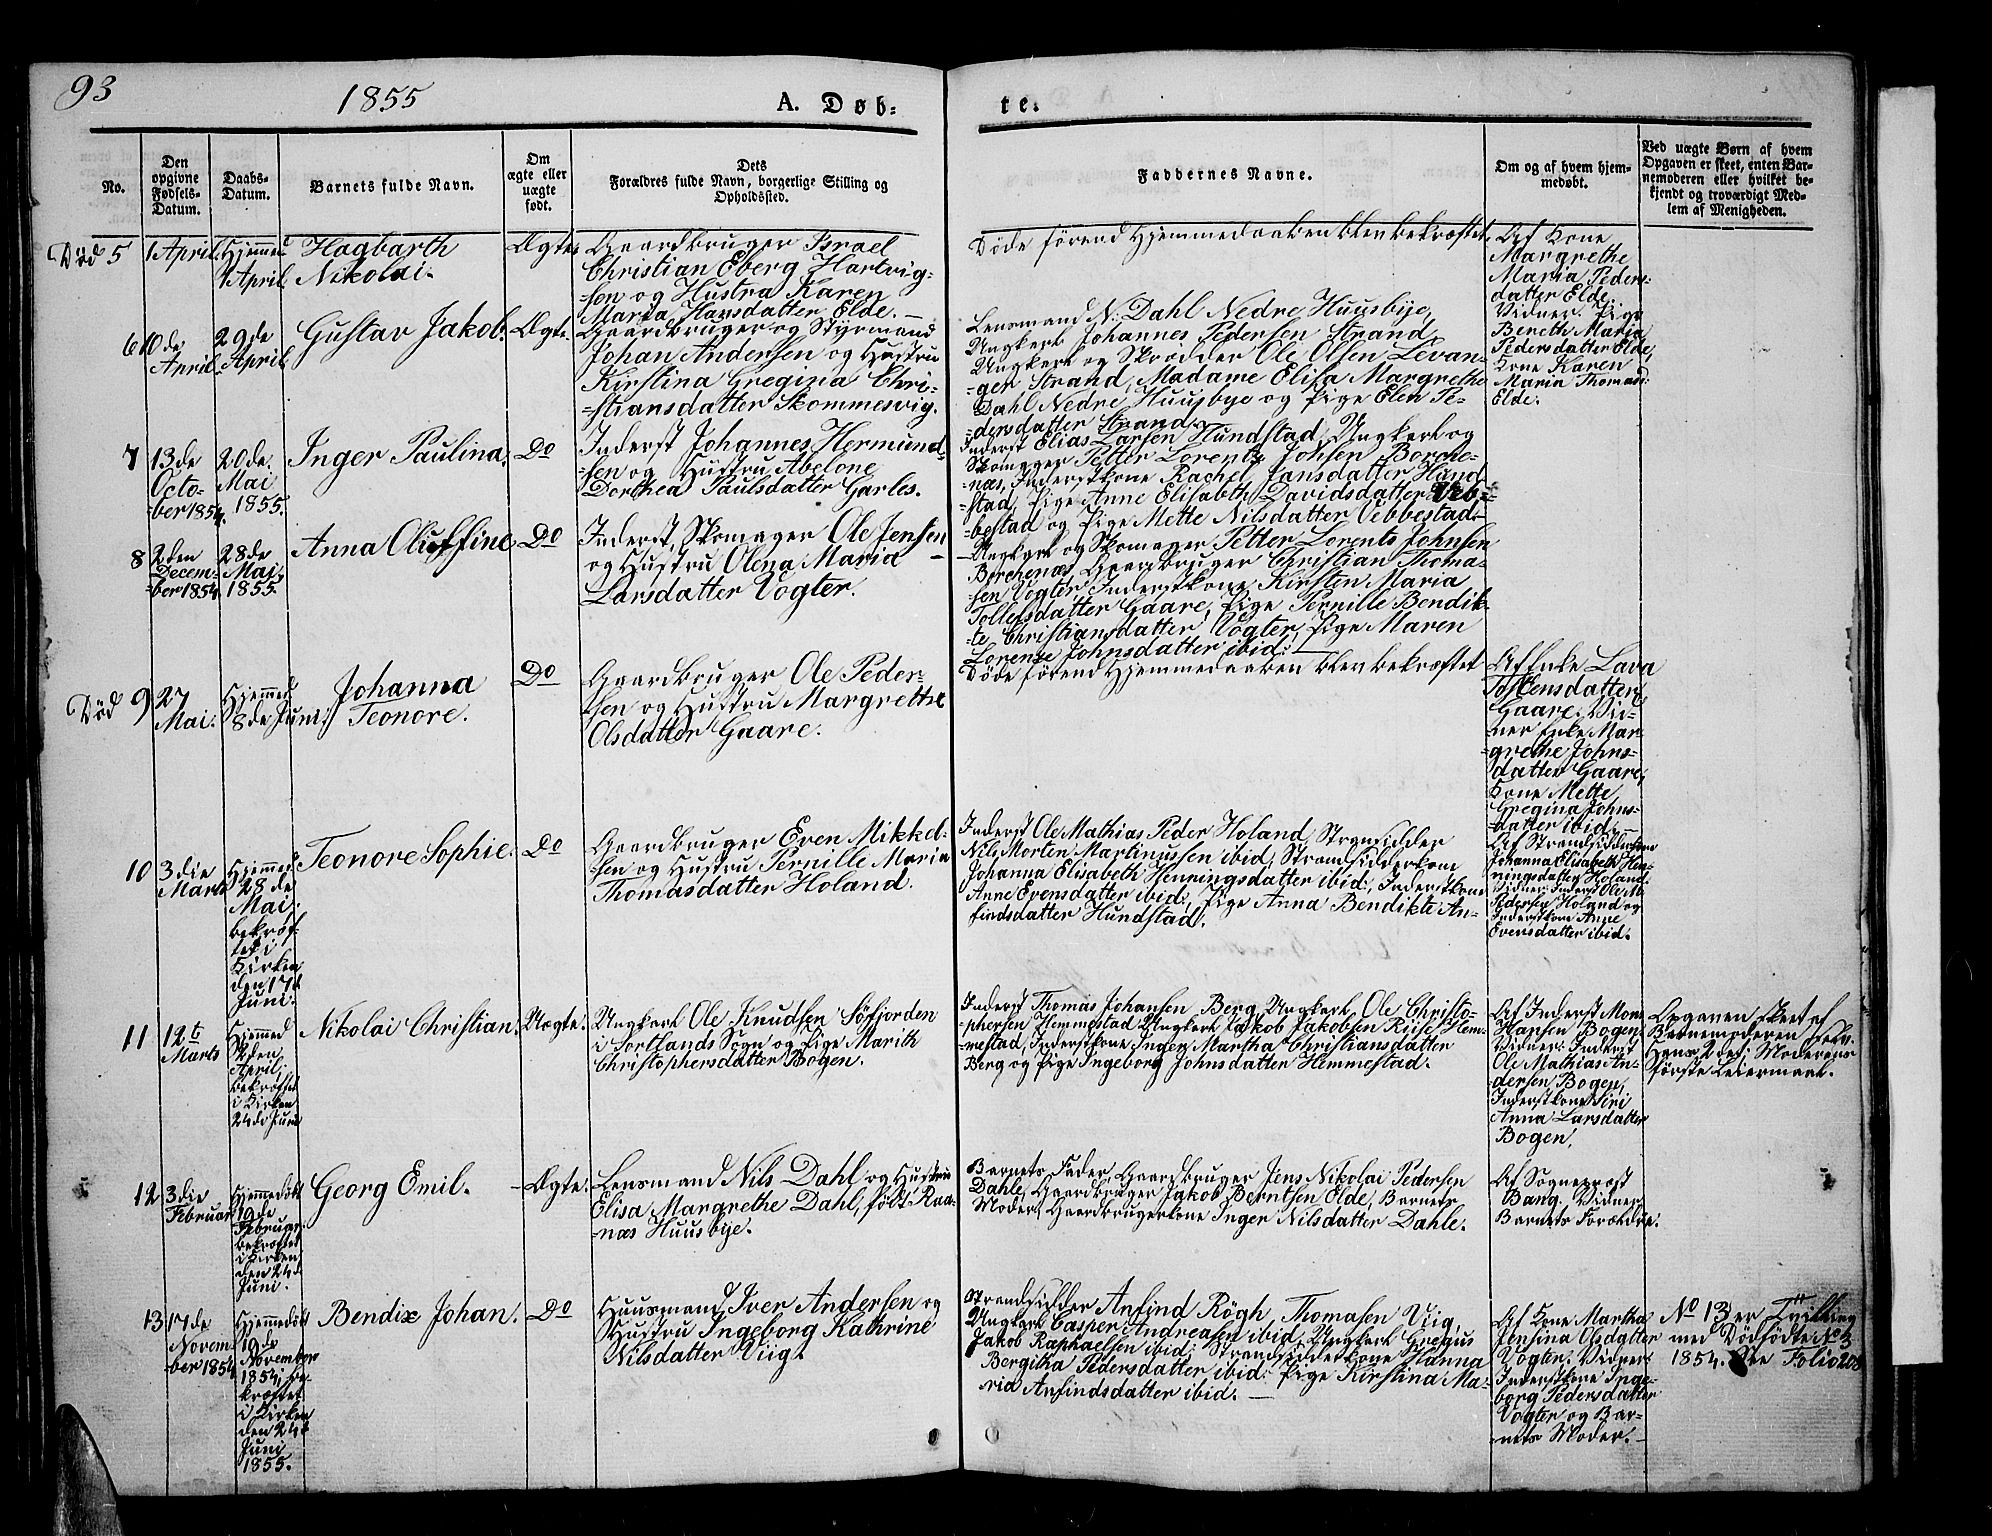 93
1855
A. Døb-
te.
No.
Den opgivne Fødsels-Datum.
Daabs-Datum.
Barnets fulde Navn.
Om ægte eller uægte født.
Dets Forældres fulde Navn, borgerlige Stilling og Opholdssted.
Faddernes Navne.
Om og af hvem hjemmedøbt.
Ved uægte Børn af hvem Opgaven er skeet, enten Barnemoderen eller hvilket bekjendt og troværdigt Medlem af Menigheden.
Død 5
1 April.
Hjemmed
1 April.
Hagbarth
Nikolai.
Ægte.
Gaardbruger Israel
Christian Eberg Hartvig-
-sen og Hustru Karen
Maria Hansdatter Elde. —
Døde førend Hjemmedaaben blev bekræftet.
Af Kone
Margrethe
Maria Peders-
datter Elde.
Vidner. Pige
Bereth Maria
Pedersdatter Elde,
Kone Karen
Maria Thomasd:
Elde.
6
10de
April.
29de
April.
Gustav Jakob.
Ægte.
Gaardbruger og Styrmand
Johan Andersen og Hustru
Kirstina Gregina Chri-
-stiansdatter Skommesvig.
Lensmand N: Dahl Nedre Huusbye,
Ungkarl Johannes Pedersen Strand,
Ungkarl og Skrædder Ole Olsen Levan-
-gen Strand, Madame Elisa Margrethe
Dahl Nedre Huusbye og Pige Elen Pe-
-dersdatter Strand.
7
13de
Octo-
-ber 1854.
20de
Mai
1855.
Inger Paulina.
Do
Inderst Johannes Hermund-
-sen og Hustru Abelone
Dorthea Paulsdatter Garles.
Inderst Elias Larsen Hundstad, Ungkarl og
Skomager Petter Lorents Johsen Borche-
-næs, Inderstkone Rachel Jansdatter Hund
-stad, Pige Anne Elisabeth Davidsdatter Veb-
-bestad og Pige Mette Nilsdatter Vebbestad.
8
2den
Decem-
-ber 1854.
28de
Mai
1855.
Anna Oluffine
Do
Inderst, Skomager Ole Jensen
og Hustru Olena Maria —
Larsdatter Vogter.
Ungkarl og Skomager Petter Lorents Johnsen
Borchenæs, Gaardbruger Christian Thoma-
-sen Vogter, Inderstkone Kirsten Maria
Tollefsdatter Gaare, Pige Pernille Bendik-
-te Christiansdatter Vogter, Pige Maren
Lorense Johnsdatter ibid. —
Død 9
27
Mai.
Hjemmed
8de Juni.
Johanna
Teonore.
Do
Gaardbruger Ole Peder-
-sen og Hustru Margrethe
Olsdatter Gaare.
Døde førend Hjemmedaaben blev bekræftet
Af Enke Lava
Tostensdatter
Gaare. Vid-
ner Enke Mar
-grethe Johns-
datter Gaare,
Kone Mette
Gregina Johns-
-datter ibid.
10
3die
Marts
Hjemmed
28de
Mai.
bekræf-
tet i
Kirken
den 17de
Juni.
Teonore Sophie.
Do
Gaardbruger Even Mikkel-
-sen og Hustru Pernille Maria
Thomasdatter Holand.
Inderst Ole Mathias Peder Holand, Strandsidder
Nils Morten Martinussen ibid, Strandsidderkone
Johanna Elisabeth Henningsdatter ibid:, Inderstkone
Anne Evensdatter ibid:, Pige Anna Bendikte An-
findsdatter Hundstad.
Af Strandsidderkone
Johanna Elisabeth Hen-
ningsdatter Holand.
Vidner: Inderst Ole M.
Pedersen Holand og
Inderstkone Anne
Evensdatter ibid.
11
12t
Marts
Hjemmed
2den
April.
bekræftet
i Kirken
24de Juni
Nikolai Christian.
Uægte.
Ungkarl Ole Knudsen Søfjorden
i Sortlands Sogn og Pige Marith
Christophersdatter Bogen.
Inderst Thomas Johansen Berg, Ungkarl Ole Christo-
-phersen Hemmestad Ungkarl Jakob Jakobsen Riise Hem-
-mestad, Inderstkone Inger Martha Christiansdatter
Berg og Pige Ingeborg Johnsdatter Hemmestad.
Af Inderst Mons
Hansen Bogen.
Vidner: Inderst
Ole Mathias An-
dersen Bogen,
Inderstkone Siri
Anna Larsdatter
Bogen.
Opgaven skeet af
Barnemoderen selv.
Hans 2det; Moderens
første Leiermaal.
12
3die
Februar
Hjemmedøbt
19de
Februar.
bekræftet
i Kirken
den 24de
Juni.
Georg Emil.
Ægte.
Lensmand Nils Dahl og Hustru
Elisa Margrethe Dahl, født Raa-
-næs Huusbye.
Barnets Fader, Gaardbruger Jens Nikolai Pedersen
Dahle, Gaardbruger Jakob Berntsen Elde, Barnets
Moder, Gaardbrugerkone Inger Nilsdatter Dahle.
Af Sogneprest
Bang. Vidner
Barnets Forældre.
13
17de
Novem-
ber 1854.
Hjemmedøbt
19de
November
1854, be-
kræftet
i Kirken
den 24de
Juni
1855.
Bendix Johan.
Do
Huusmand Iver Andersen og
Hustru Ingeborg Kathrine
Nilsdatter Viig.
Strandsidder Anfind Røgh Thomasen Viig,
Ungkarl Casper Andreasen ibid, Ungkarl Gregus
Jakob Raphaelsen ibid: Strandsidderkone Hanna
Bergitha Pedersdatter ibid: Pige Kirstina Ma-
ria Anfindsdatter ibid. —
Af Kone Martha
Jensina Olsdatter
Vogter. Vidner
Inderstkone Inge-
borg Pedersdatter
Vogter og Bar-
-nets Moder. —
No 13 er Tvilling
med Dødfødte No 3
1854. See Folio 208